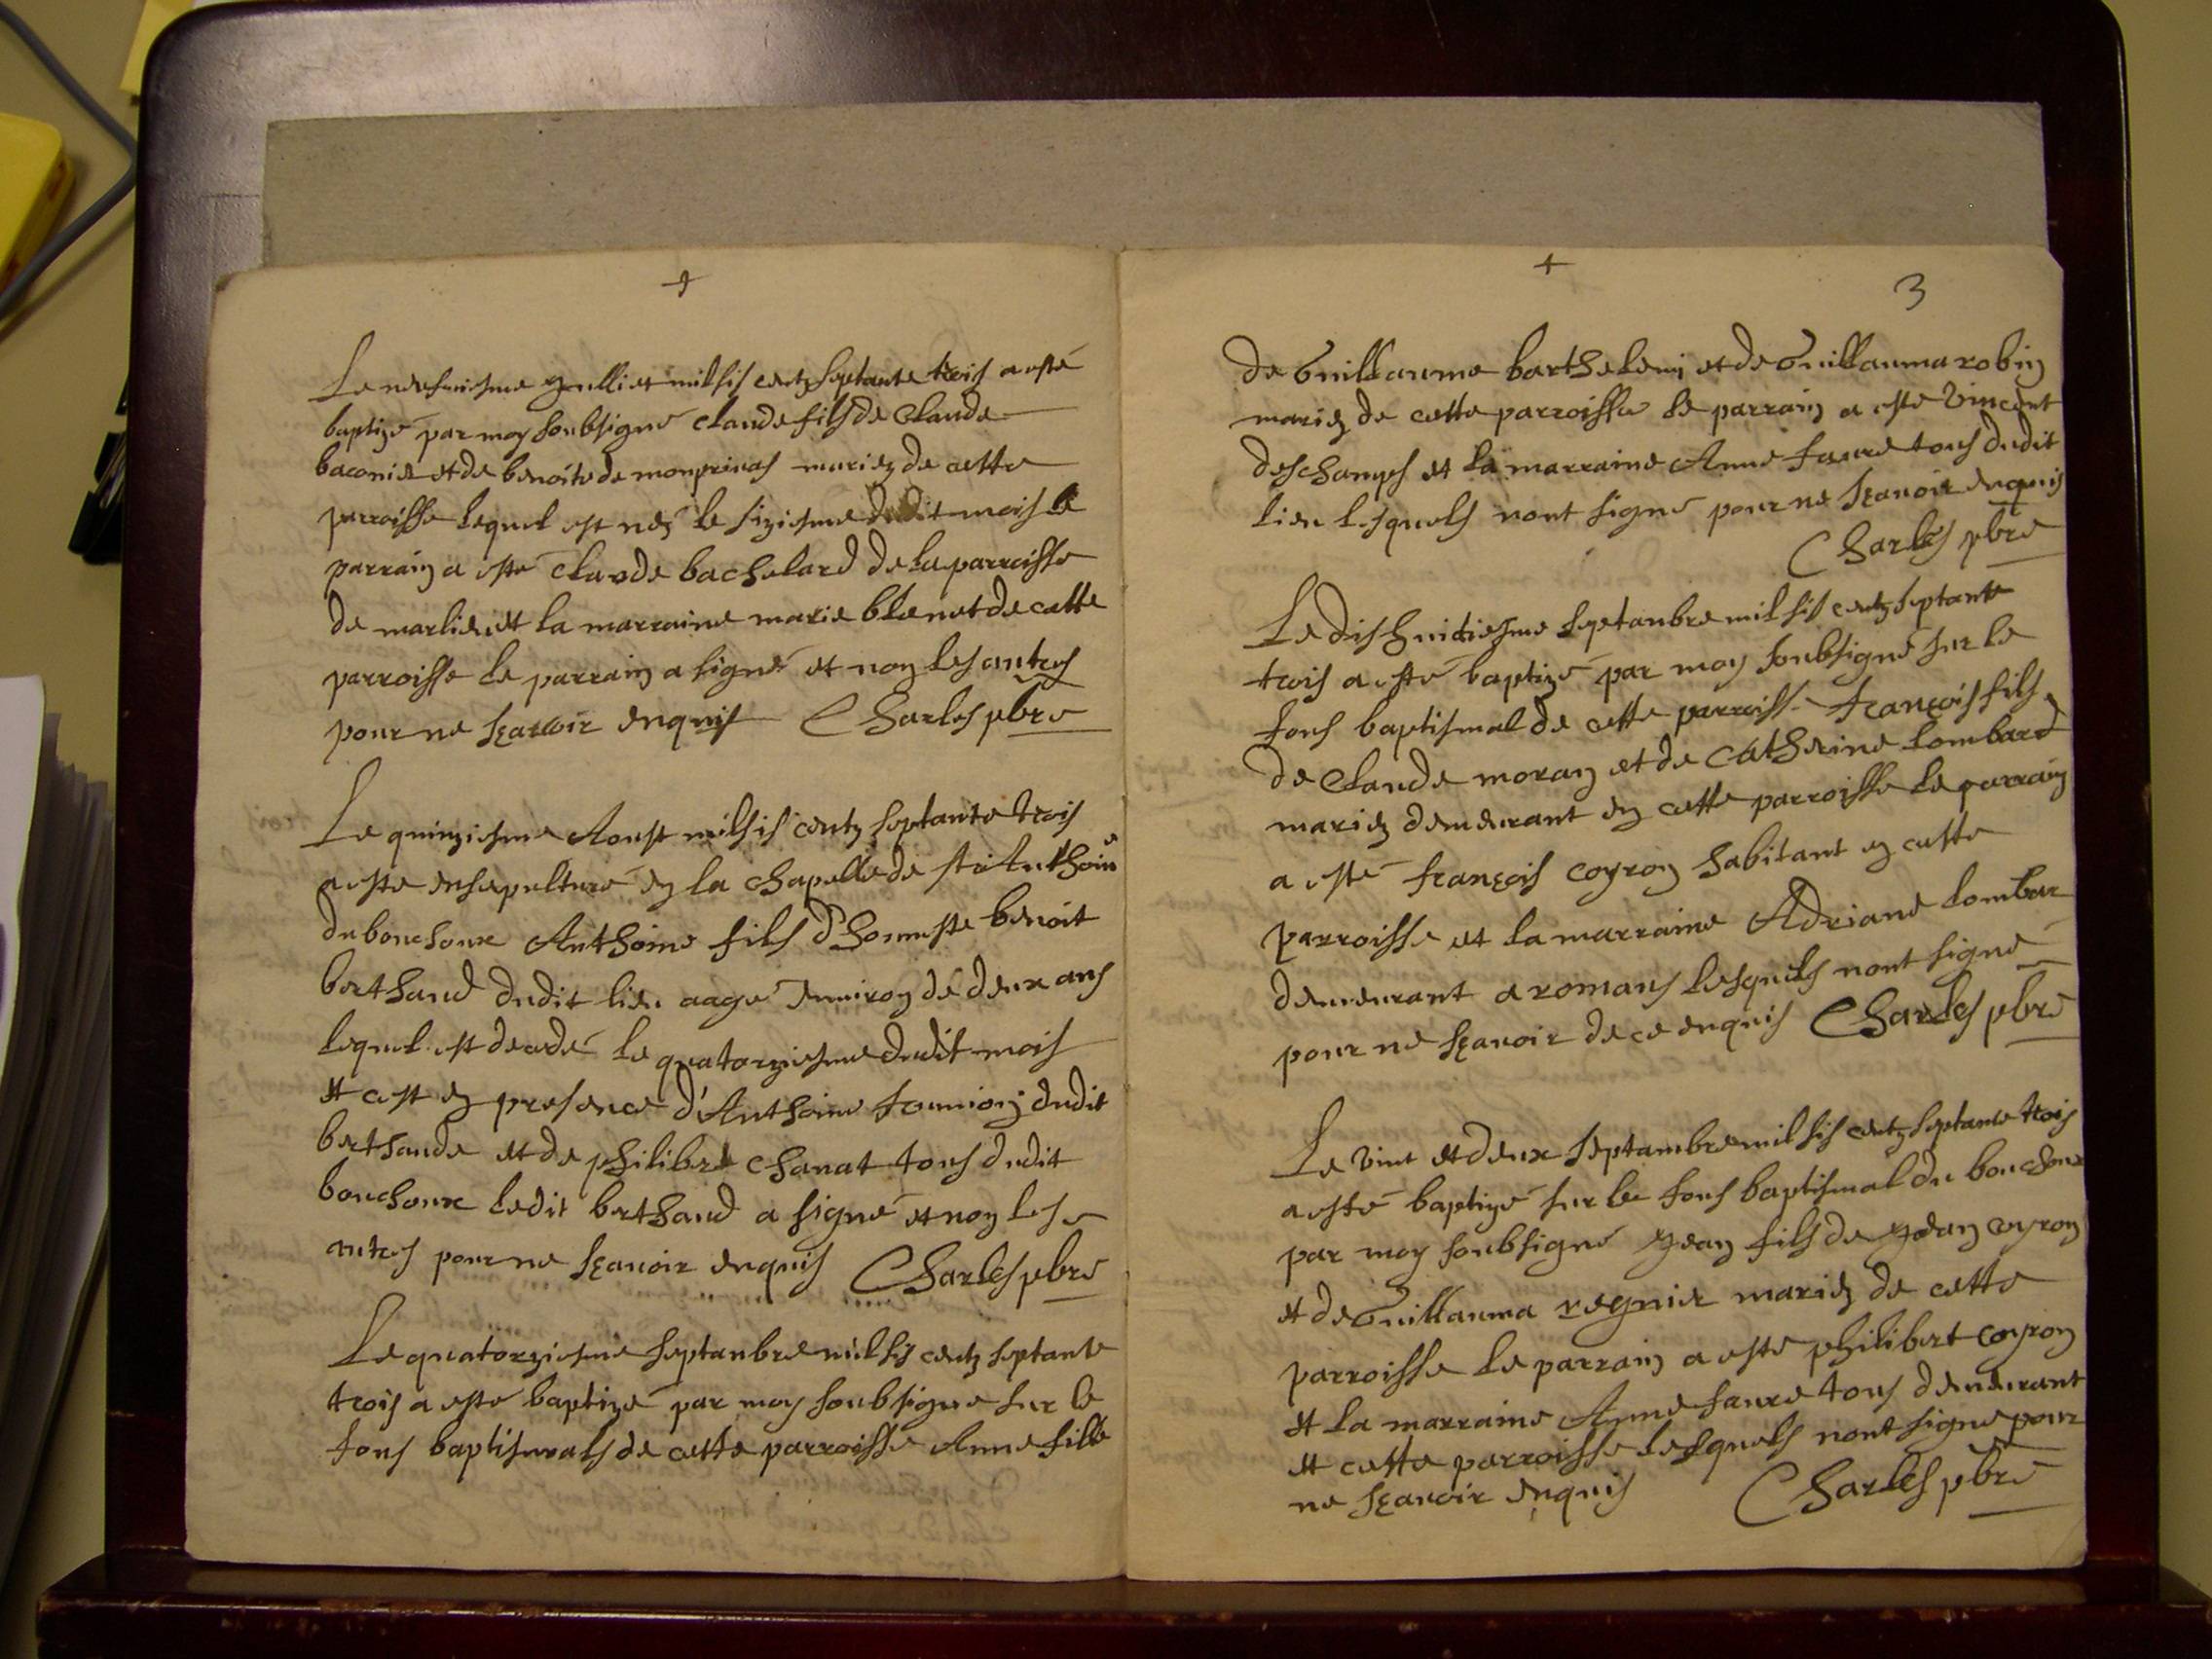 +
Le neufuiesme Julliet mil six centz septante trois a esté
baptizé par moy soubsigné Claude fils de Claude
baconier et de benoite de monprinas mariez de cette
parroisse lequel est nez le siziesme dudit mois le
parrain a esté Claude bachelard de la parroisse
de marlieu et la marraine marie blenet de catte
parroisse le parrain a signé et non les autres
pour ne sçavoir enquis Charles pbre
Le quinziesme Aoust mil sis centz septante trois
a este ensepulturé en la chapelle de st Anthoine
du bouchoux Anthoine fils d'honneste benoit
berthaud dudit lieu aagé enuiron de deux ans
lequel est decedé le quatorziesme dudit mois
et cest en presence d'Anthoine dudit
berthaude et de philibert chanat tous dudit
bouchoux ledit berthaud a signé et non les
autres pour ne sçauoir enquis Charles pbre
Le quatorziesme septanbre mil sis centz septante
trois a esté baptizé par moy soubsigne sur le
fons baptismals de cette parroisse Anne fille
+
3
de Guillaume barthelemi et de Guillauma robin
mariez de cette parroisse le parrain a esté Vincent
deschamps et la marraine Anne faure tous dudit
lieu lesquels nont signé pour ne sçauoir enquis
Charles pbre
Le dishuitiesme septanbre mil sis centz septante
trois a esté baptizé par moy soubsigné sur le
fons baptismal de cette parroisse françois fils
de Claude moran et de Catherine lombard
mariez demeurant en cette parroisse le parrain
a esté françois coyron habitant en cette
parroisse et la marraine Adriane lombar
demeurant a romans lesquels nont signé
pour ne sçauoir de ce enquis Charles pbre
Le vint et deux septambre mil sis centz septante trois
a esté baptizé sur le fons baptismal du bouchoux
par moy soubsigné Jean fils de Jean coyron
et de Guillauma regnier mariez de cette
parroisse le parrain a esté philibert coyron
et la marraine Anne faure tous demeurant
et cette parroisse lesquels nont signé pour
ne sçauoir enquis Charles pbre